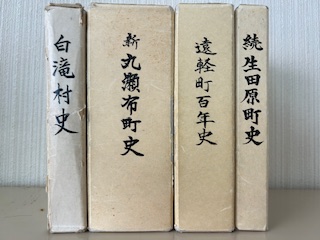 白滝村史
新丸瀬布町史
遠軽町百年史
続生田原町史